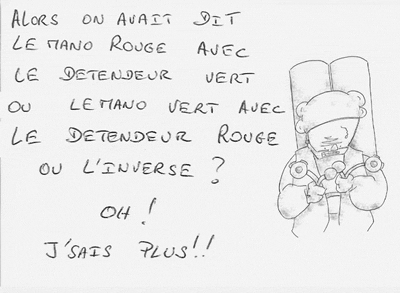 ALORS ON AVAIT DIT
LE MANO ROUGE AVEC
LE DETENDEUR VERT
OU LE MANO VERT AVEC
LE DETENDEUR ROUGE
OU L'INVERSE ?
OH !
J'SAIS PLUS!!